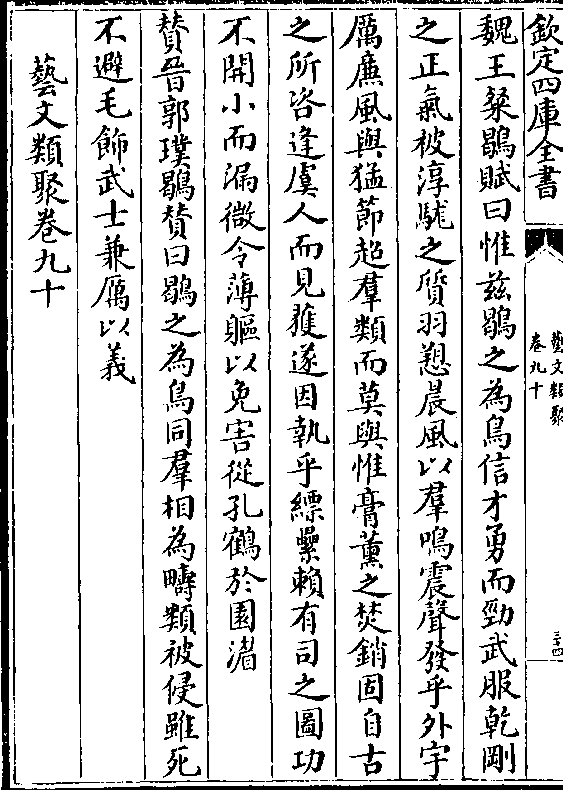 欽定四庫全書
藝文類聚
卷九十
三十四
魏王粲鶡賦曰惟兹鶡之為鳥信才勇而勁武服乾剛
之正氣被淳駹之質羽愬晨風以羣鳴震聲發乎外宇
厲廉風與猛節超羣類而莫與惟膏薰之焚銷固自古
之所咨逢虞人而見獲遂因執乎縲纍賴有司之圖功
不開小而漏微令薄軀以免害從孔鶴於園湝
賛晉郭璞鶡賛曰鶡之為鳥同羣相為疇類被侵雖死
不避毛飾武士兼厲以義
藝文類聚卷九十